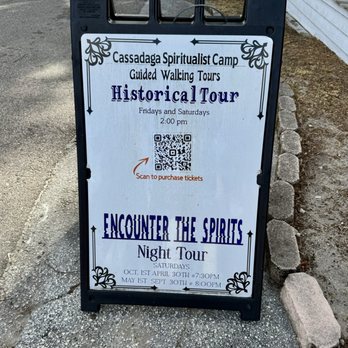 Cassadaga Spiritualist Camp
Guided Walking Tours
Historical Tour
Fridays and Saturdays
2:00 pm
Scan to purchase tickets
ENCOUNTER THE SPIRITS
Night Tour
SATURDAYS
OCT. 1ST APRIL 30TH @7:30PM
MAY 1ST SEPT. 30TH @ 8:00PM